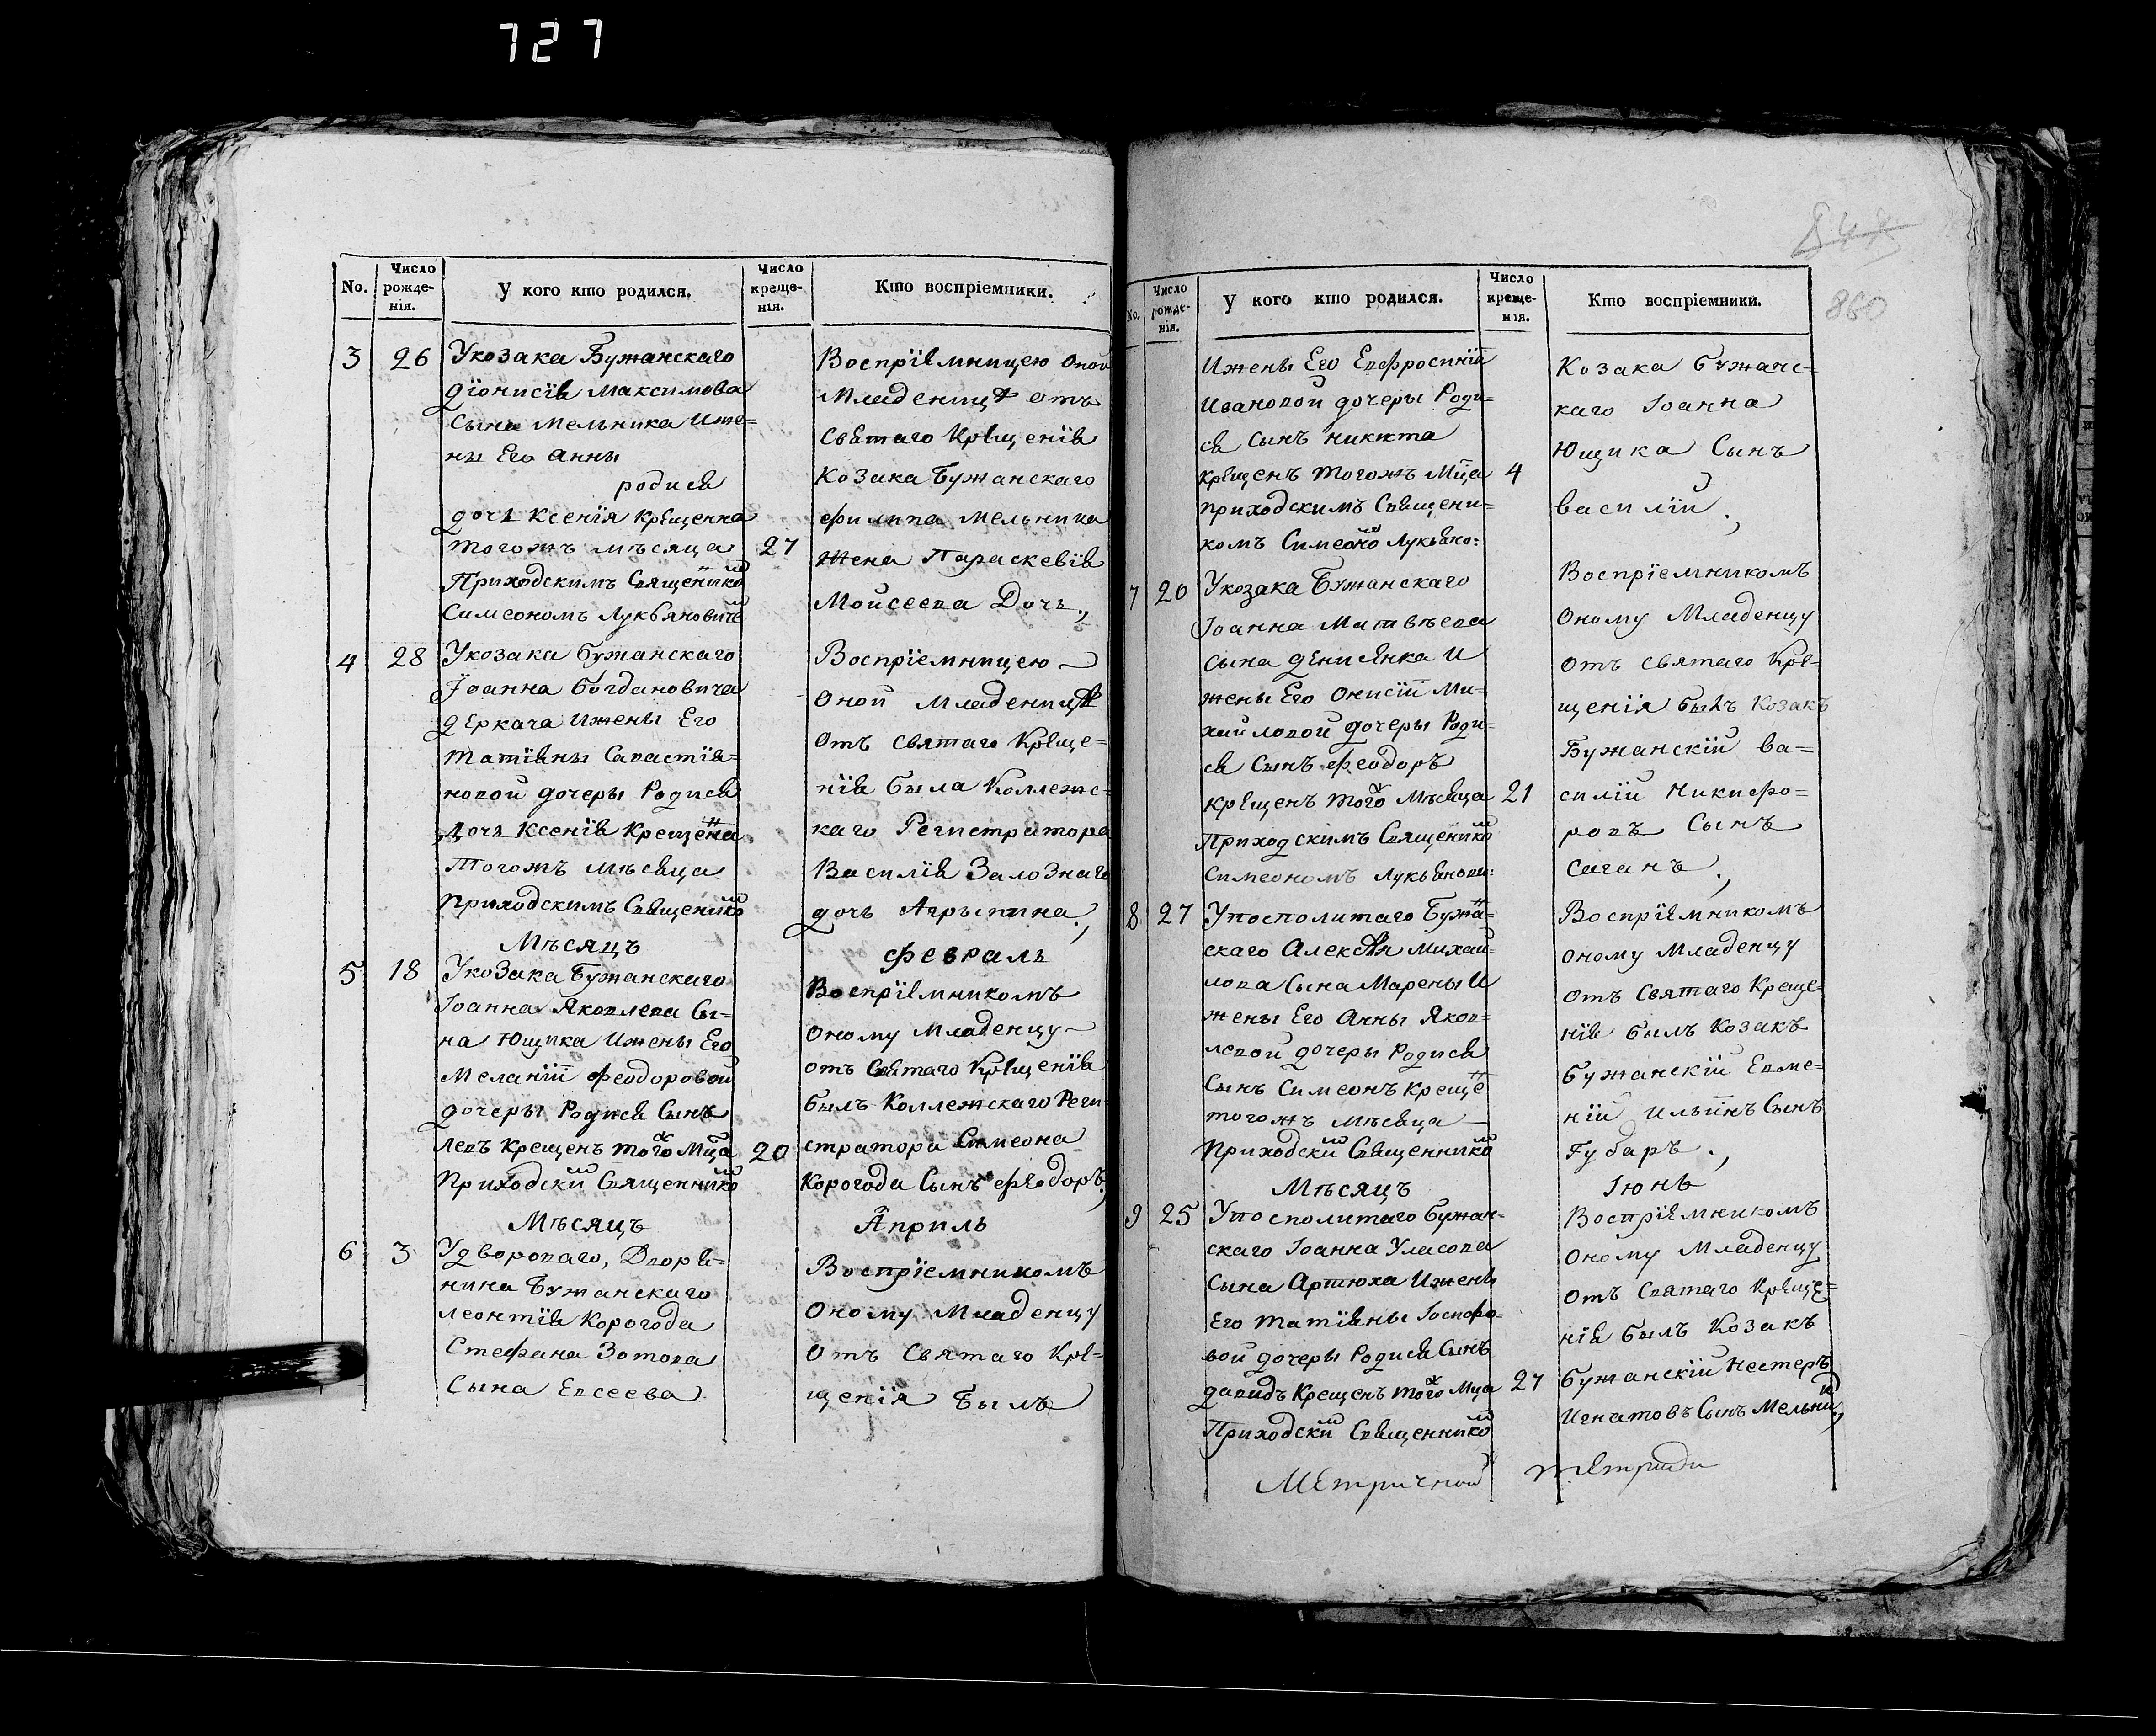 727
No.
Число рожденія.
У кого кто родился.
Число крещенія.
Кто воспріемники.
3 26
Укозака Бужанскаго
Діонисія Максимова
Сына Мельника Иже=
ны Его Анны
родися
дочъ Ксенія Крещенна
тогожъ мѣсяца 27
Приходскимъ Священнико
Симеономъ Лукьяновиче
Воспріемницею оной
Младеницѣ отъ
Святаго Крещенія
Козака Бужанскаго
Филипа Мельника
Жена Параскевія
Моисеева Дочъ.,
4 28
Укозака Бужанскаго
Іоанна Богдановича
Деркача Ижены Его
Татіяны Савастія=
новой дочеры Родися
дочъ Ксенія Крещенна
Тогожъ мѣсяца
Приходскимъ Священнико
Воспріемницею
оной Младеницѣ
отъ Святаго Креще=
нія была Коллежс=
каго Регистратора
Василія Залознаго
дочъ Агрыпина.,
Мѣсяцъ Февраль
5 18
Укозака Бужанскаго
Іоанна Яковлева Сы=
на Ющика Ижены Его
Меланіи Феодоровой
дочеры Родися Сынъ
Левъ Крещенъ того Мца 20
Приходски Священнико
Воспріемникомъ
оному Младенцу
отъ Святаго Крещенія
былъ Коллежскаго Реги-
стратора Симеона
Корогода Сынъ Феодоръ.,
Мѣсяцъ Априль
6 3
Удвороваго, Дворя=
нина Бужанскаго
Леонтія Корогода
Стефана Зотова
Сына Евсеева
Воспріемникомъ
оному Младенцу
отъ Святаго Кре=
щенія былъ
860
No.
Число рожденія.
У кого кто родился.
Число крещенія.
Кто воспріемники.
Ижены Его Евфросиніи
Ивановой дочеры Роди=
ся Сынъ Никита
Крещенъ тогожъ Мца 4
приходскимъ Священи=
комъ Симеоно Лукьяно:
Козака Бужанс=
каго Іоанна
Ющика Сынъ
василій.,
7 20
Укозака Бужанскаго
Іоанна Матвѣева
Сына Денисянка И
жены Его Онисіи Ми=
хайловой дочеры Роди=
ся Сынъ Феодоръ
Крещенъ того Мѣсяца 21
Приходскимъ Священнико
Симеономъ Лукьянови:
Воспріемникомъ
Оному Младенцу
отъ Святаго Кре=
щенія былъ Козакъ
Бужанскій Ва=
силій Никифо=
ровъ Сынъ
Саганъ.,
8 27
Упосполитаго Бужа=
скаго Алексѣя Михай=
лова Сына Марены И
жены Его Анны Яков=
левой дочеры Родися
Сынъ Симеонъ Креще
тогожъ Мѣсяца
Приходски Священнико
Воспріемникомъ
оному Младенцу
отъ Святаго Креще=
нія былъ Козакъ
бужанскій Евме=
ній Ильинъ Сынъ
Губаръ.,
Мѣсяцъ Іюнь
9 25
Упосполитаго Бужан=
скаго Іоанна Уласова
Сына Артюха Ижены
Его Татіяны Іосифо=
вой дочеры Родися Сынъ
давидъ Крещенъ того Мца 27
Приходски Священнико
Воспріемникомъ
Оному Младенцу
отъ Святаго Креще=
нія былъ Козакъ
бужанскій Нестеръ
Игнатовъ Сынъ Мельни.,
Метричной тетради